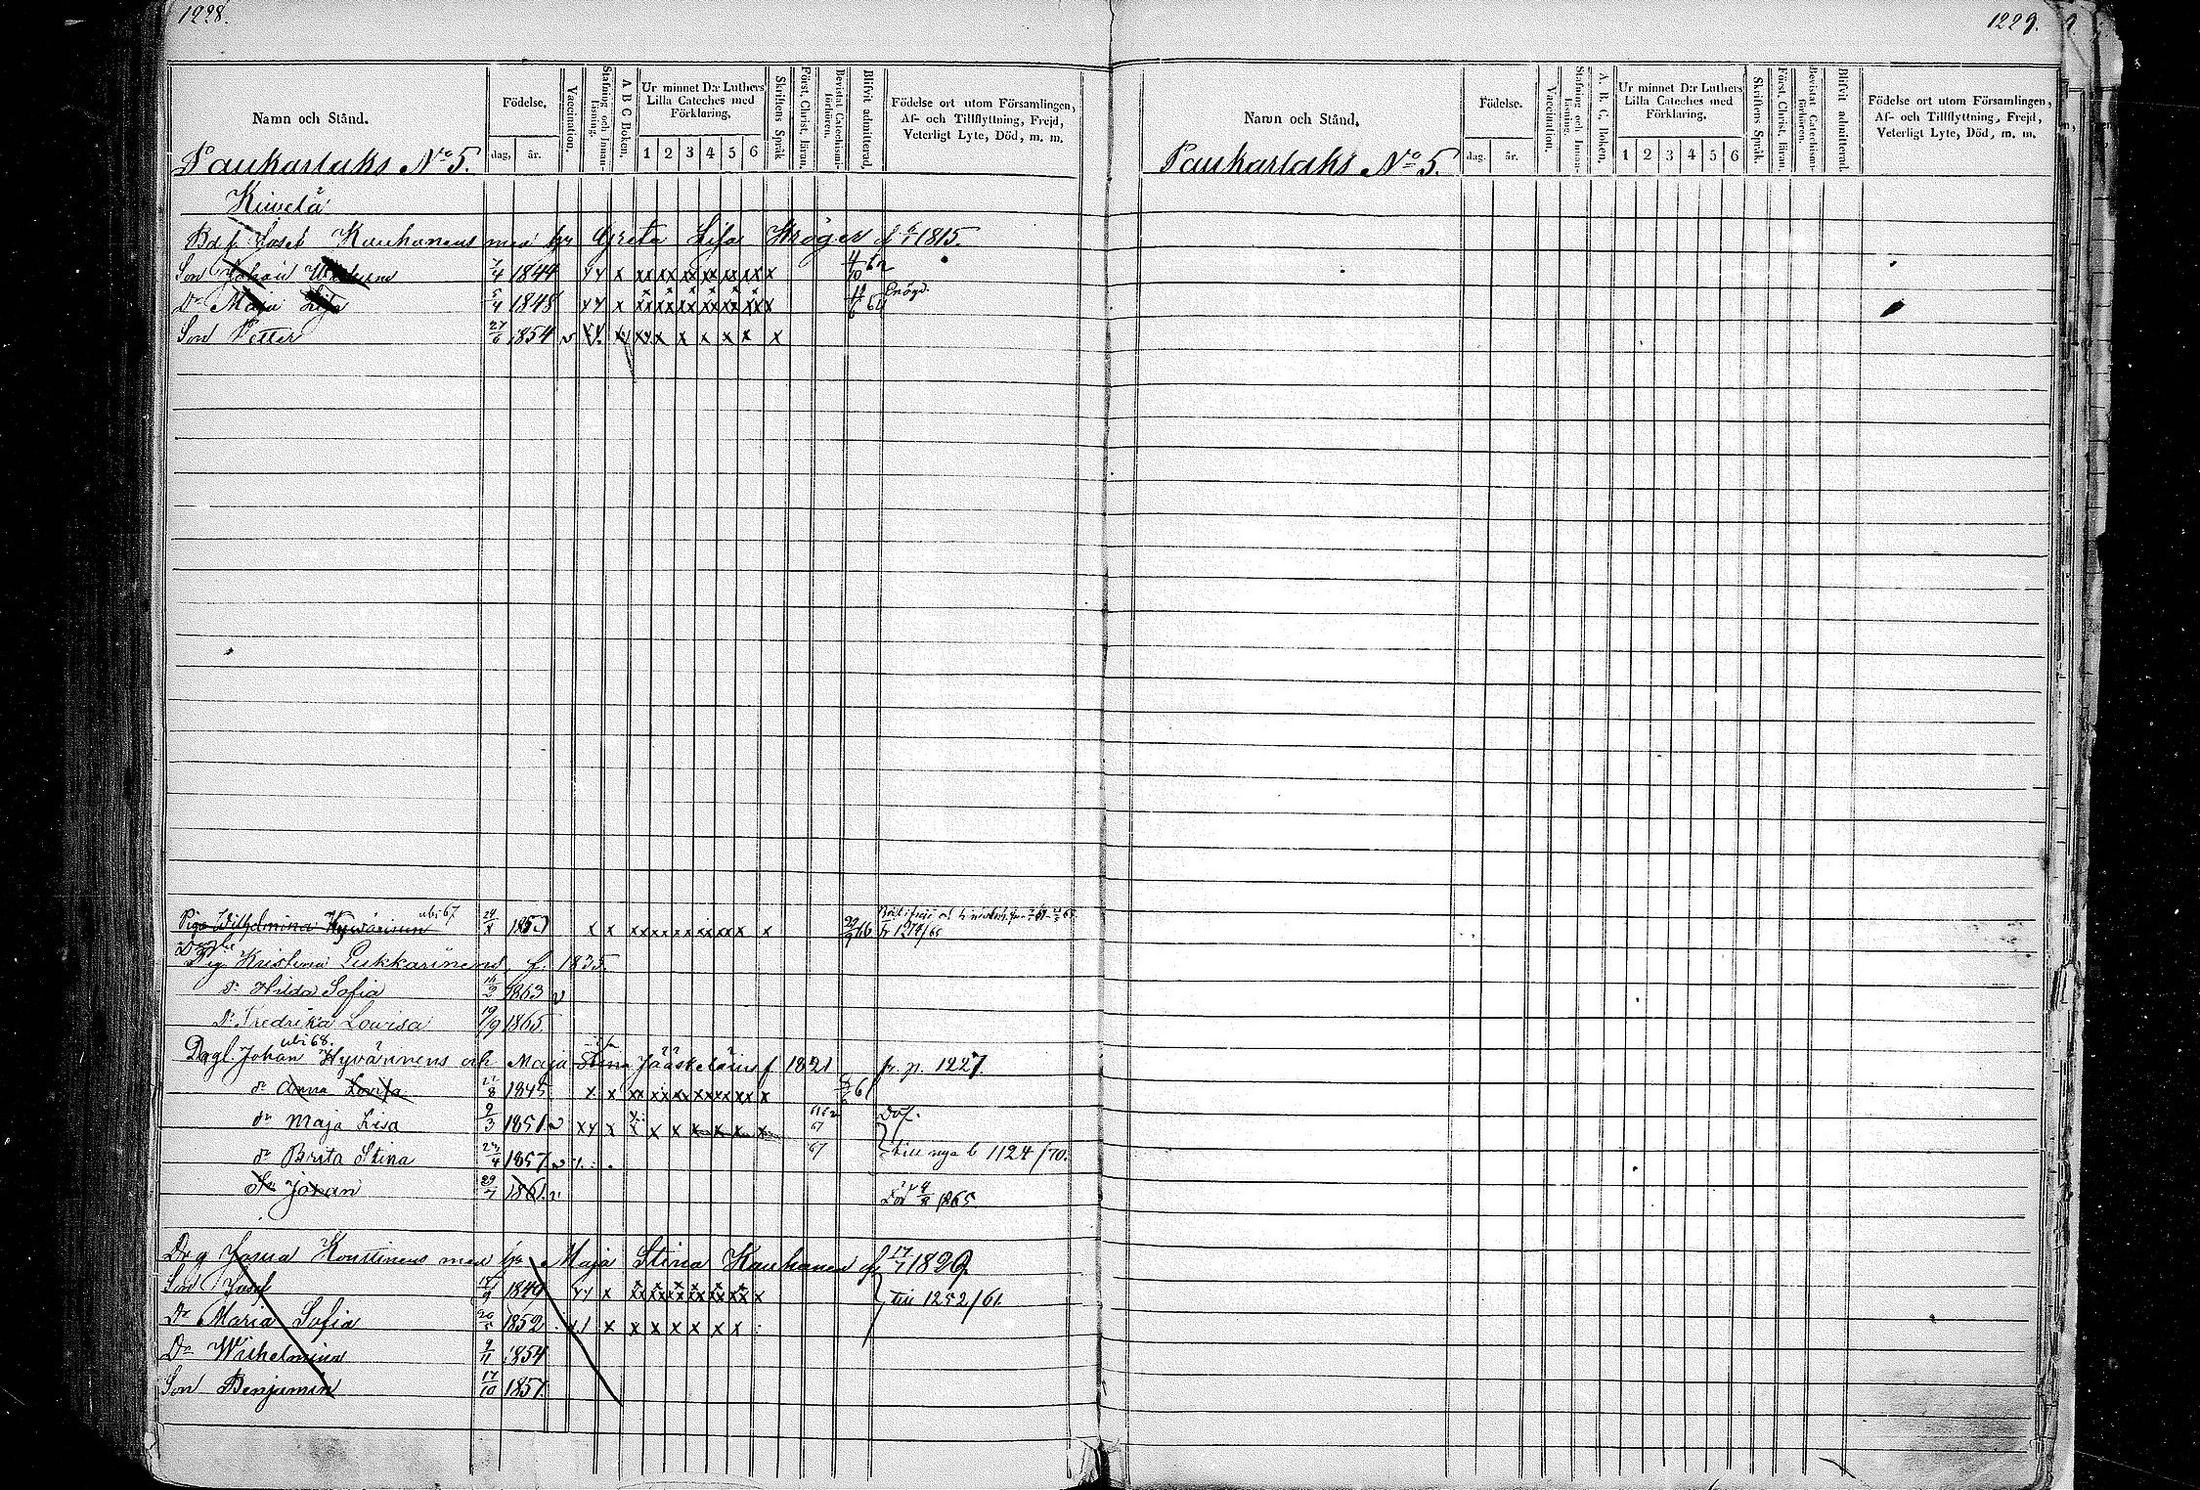 1228.
Namn och Stånd.
Födelse.
dag, år.
Vaccination.
Stafning och Innanläsning.
A B C Boken.
Ur minnet D:r Luthers Lilla Cateches med Förklaring.
1 2 3 4 5 6
Skriftens Språk
Först. Christ. läran.
Bevistat Catechismiförhören.
Blifvit admitterad.
Födelse ort utom Församlingen,
Af- och Tillflyttning, Frejd,
Veterligt Lyte, Död, m. m.
Paukarlaks No 5.
Kiwelä
Josef Kauhanens med hu Greta Lisa Kröger f 1815.
Son Johan 7/4 1844 xx x xx xx xx xx xx xx x
Dr Maja Lisa 5/4 1848 xx x xx xx xx xx xx xx x
Son Petter 27/6 1854 v x x x x x x x
Pig. Wilhelmina Hywärinen ubi 67 x x xx xx xx xx xx x x fr 1274/65
Pig. Kristina Pukkarinens, f. 1835.
dr Hilda Sofia 1863 v
dr Fredrika Lowisa 19/9 1865.
Dagl. Johan Hyvärinens och Maja Stina Jääskeläin f 1821 fr. p. 1227.
ubi 68.
dr Anna Lovisa 1845 x x xx xx xx xx xx x x
dr Maja Lisa 9/3 1851 v xx x x x x x x x 67 Döf.
dr Brita Stina 1857 v 67 till nya b 1124/70.
Sn Johan 29/7 1861 v Död 1865.
Maja Stina Kauhanen f 17/7 1820.
Son Josef 1849 xx x xx xx xx xx xx xx x till 1252/61.
Dr Maria Sofia 1852 x x x x x x x
Dr Wilhelmina 9/11 1854
Son Benjamin 17/10 1857.
1229.
Namn och Stånd.
Födelse.
dag. år.
Vaccination.
Stafning och Innanläsning.
A. B. C. Boken.
Ur minnet D:r Luthers Lilla Cateches med Förklaring.
1 2 3 4 5 6
Skriftens Språk.
Först. Christ. läran.
Bevistat Catechismiförhören.
Blifvit admitterad.
Födelse ort utom Församlingen,
Af- och Tillflyttning, Frejd,
Veterligt Lyte, Död, m. m.
Paukarlaks No 5.